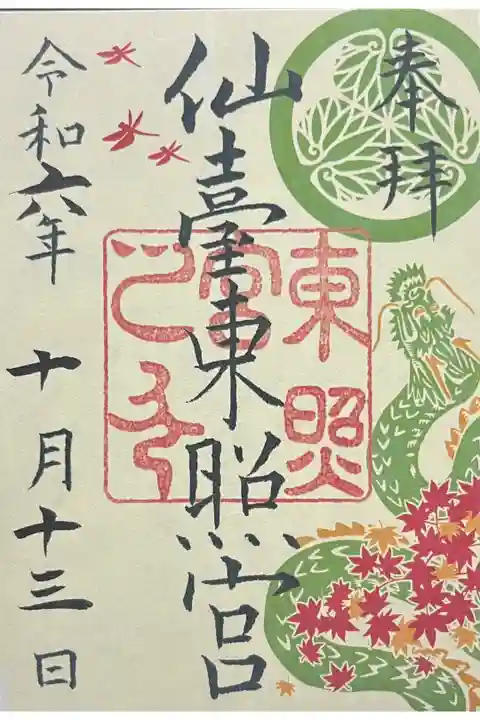 奉拝
仙臺東照宮
東照宮
令和六年
十月十三日